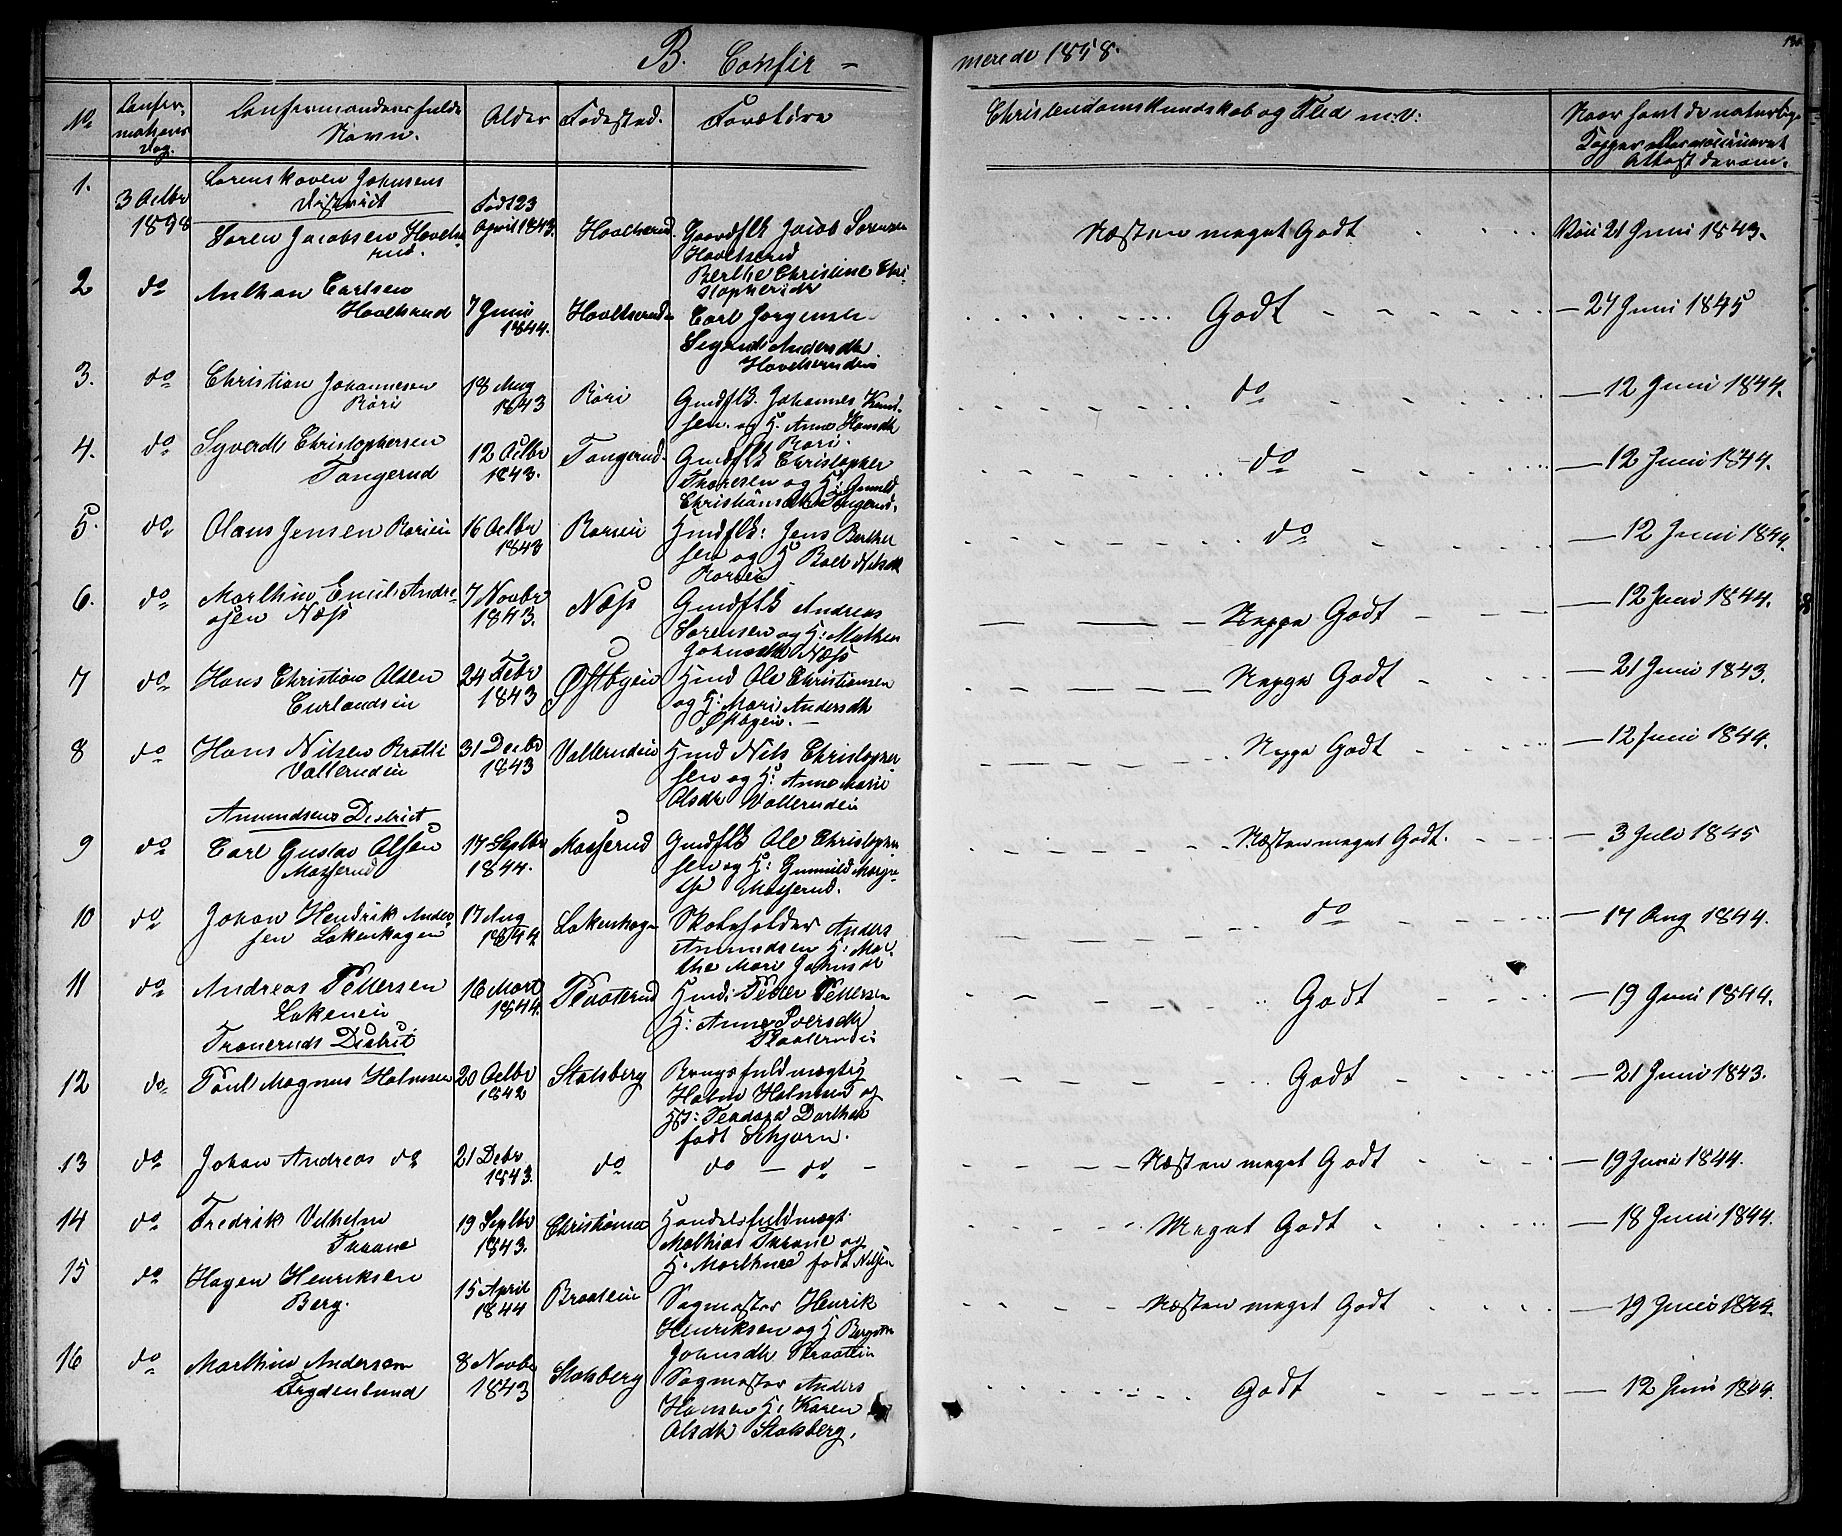 B. Confir-
merede 1858.
No
Confirmations Dag.
Confirmandens fulde Navn.
Alder
Fødested.
Forældre
Christendomskundskab og Flid m.v:
Naar havt de naturlige Kopper eller vaccineret Attest derom.
1.
3 Octbr 1858
Lorenskoven Johnsens District
Søren Jacobsen Hovelsrud.
Født 23 April 1843.
Hovelsrud.
Gaardflk Jacob Sørensen Hovelsrud
Berthe Christine Christophersdtr
Næsten meget Godt
Vacc 21 Juni 1843.
2
do
Anthon Carlsen Hovelsrud
7 Juni 1844.
Hovelsrud
Carl Jørgensen
Sigrid Andersdtr Hovelsrudeie
Godt
24 Juni 1845
3.
do
Christian Johannesen Røri
18 Aug 1843
Røri
Gmdflk. Johannes Knudsen og H. Anne Hansdtr Røri.
do
12 Juni 1844.
4.
do
Syverdt Christophersen Tangerud
12 Octbr 1843.
Tangerud.
Gmdflk Christopher Thoresen og H: Gunild Christiansdtr Tangerud.
do
12 Juni 1844.
5.
do
Olaus Jensen Rorieie
16 Octbr 1843
Rorieie
Hmdflk: Jens Berthelsen og H Bolt Nilsdtr Rorieie
do
12 Juni 1844.
6.
do
Marthin Emil Andreasen Næss
7 Novbr 1843.
Næss
Gmdflk Andreas Sørensen og H: Mathea Johnsdtr Næss
Neppe Godt
12 Juni 1844.
7
do
Hans Christian Olsen Curlandseie
24 Febr 1843
Østbyeie
Hmd Ole Christiansen og H: Mari Andersdtr Østbyeie.
Neppe Godt
21 Juni 1843.
8
do
Hans Nilsen Bratli Vallerudeie
31 Decbr 1843
Vallerudeie
Hmd Nils Christophersen og H: Anne Marie Olsdtr Vallerudeie
Neppe Godt
12 Juni 1844.
Amundsens District
9
do
Carl Gustav Olsen Masserud
17 Septbr 1844.
Masserud
Gmdflk Ole Christophersen og H: Gunnild Margrethe Masserud.
Næsten meget Godt.
3 Juli 1845
10
do
Johan Hendrik Andersen Løkenhagen
17 Aug 1844
Løkenhagen
Skoleholder Anders Amundsen H: Marthe Mari Johnsdtr
do
17 Aug 1844.
11
do
Andreas Pettersen Løkeneie
16 Mart 1844.
Plaaterud
Hmd: Petter Pettersen H: Anne Iversdtr Plaaterudeie
Godt
19 Juni 1844.
Traneruds District
12
do
Poul Magnus Holmsen
20 Octbr 1842
Stalsberg
Brugsfuldmægtig Holm Holmsen og H: Teodora Dorthea født Schjørn.
Godt
21 Juni 1843.
13
do
Johan Andreas do
21 Debr 1843.
do
do - do -
Næsten meget Godt
19 Juni 1844.
14
do
Fredrik Vilhelm Thrane
19 Septbr 1843.
Christiania
Handelsfuldmægt. Mathias Thrane og H. Marthine født Nilsen
Meget Godt
18 Juni 1844.
15
do
Hagen Henriksen Berg.
15 April 1844
Braateeie
Sagmester Henrik Henriksen og H Bergitte Johnsdtr Braateeie
Næsten meget Godt
19 Juni 1844.
16
do
Marthin Andersen Frydenlund
8 Novbr 1843
Stalsberg
Sagmester Anders Hansen H: Karen Olsdtr Stalsberg.
Godt
12 Juni 1844.